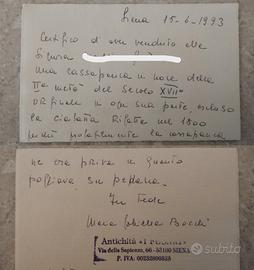 Siena 15-6-1993
Certifico di aver venduto alla
Signora
una cassapanca in noce della
IIª metà del Secolo XVIIº
originale in ogni sua parte, escluso
la ciabatta rifatta nel 1800
perché probabilmente la cassapanca
ne era priva in quanto
poggiava su pedana.
In Fede
Maria
Antichità
Via della Sapienza, 66 - 53100 SIENA
P. IVA:
subito